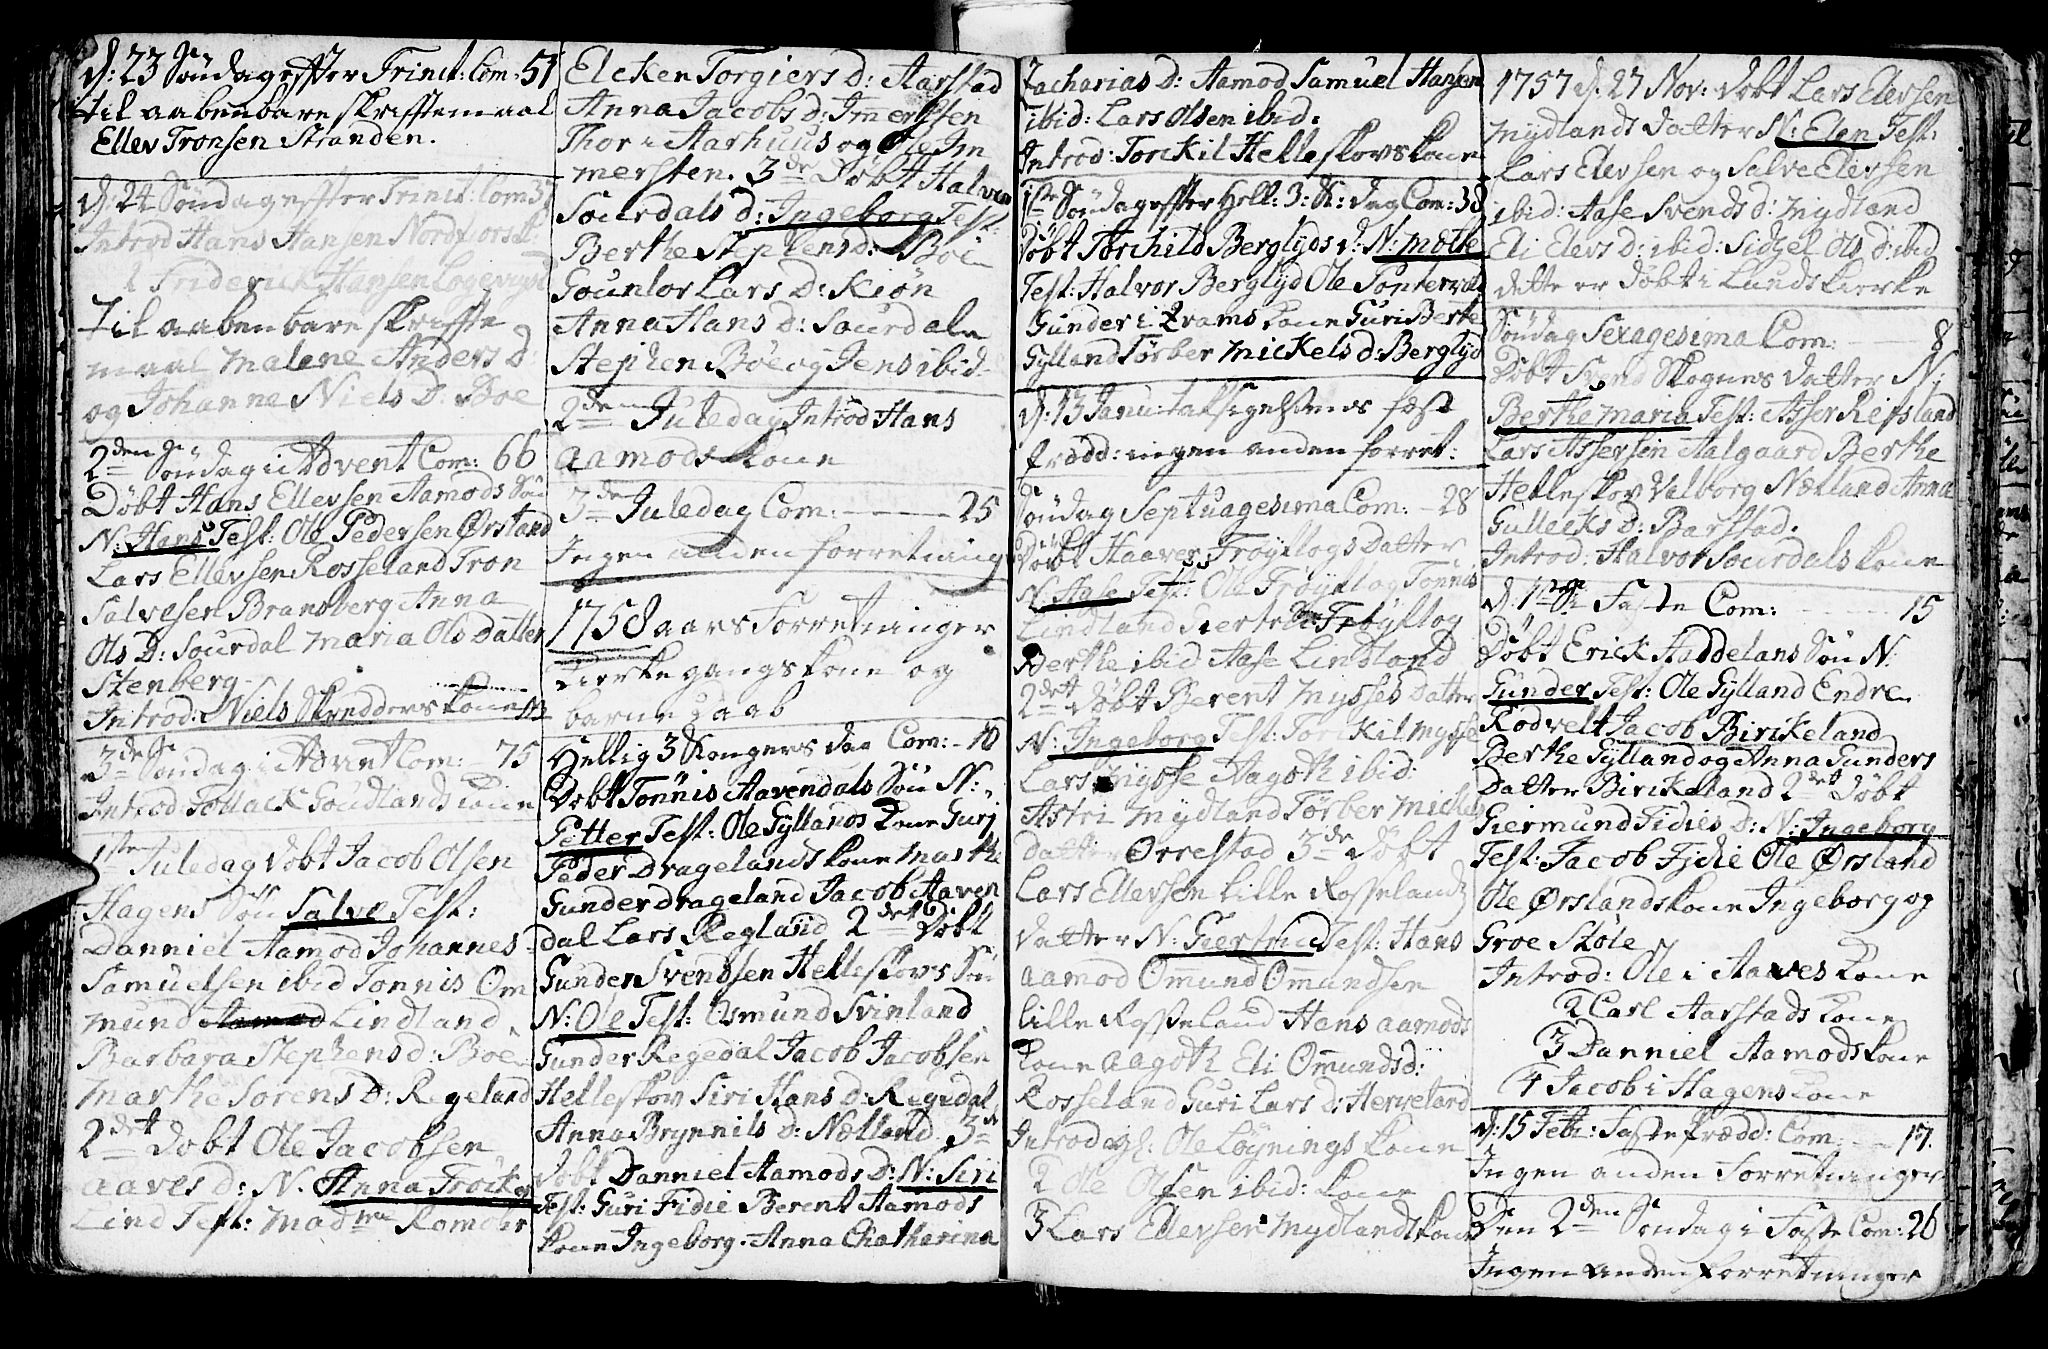 d: 23 Søndag effter Trinit: Com: 51
til aabenbare skrifftemaal
Ellev Tronsen Stranden.
d: 24 Søndag effter Trinit: Com 37
Introd Hans Hansen Nordfiors
Friderick Hansen
Til aabenbare skriffte
maal Malene Anders D:
og Johanne Niels D: Boe
2den S: Søndag i Advent Com: 66
Døbt Hans Ellevsen Aamods Søn
N: Hans Test: Ole Pedersen Ørsland
Lars Ellevsen Rosseland Tron
Salvesen Bransberg Anna
Ols D: Sourdal Maria Ols Datter
Stenberg
Introd: Niels Skredders kone
3de S: Søndag i Advent Com: 75
Introd Tollack Goudlands kone
1ste Juledag døbt Jacob Olsen
Hagens Søn Salve Test:
Danniel Aamod Johannes
Samuelsen ibid Tønnis Om
mund Lindland
Barbara Stephens d: Boe
Marthe Sorens D: Regeland
2det Døbt Ole Jacobsen
aaves D: N. Anna Trøicken
Lind Test: Madme Romohr
Elcken Torgiers D: Aarstad
Anna Jacobs D: Immersten
Thor i Aarhuus og Ole Im
mersten. 3de Døbt Halvor
Sourdals d: Ingeborg Test:
Berthe Stephens d: Boe
Gounlor Lars D: Kiøn
Anna Hans D: Sourdale
Stephen Boe og Jens ibid
2den Juledag Introd Hans
Aamods kone
3de Juledag Com: 25
Ingen anden forretning
1758 aars Forretninger
Kierkegangskone og
barne daab
Hellig 3 Kongers dag Com: 10
Døbt Tønnis Aavendals Søn N:
Petter Test: Ole Gyllands kone Guri
Peder Dragelands kone Marthe
Gunder drageland Jacob Aaven
dal Lars Regland 2det Døbt
Gunden Svendsen Helleskovs Søn
N: Ole Test: Osmund Svinland
Gunder Regedal Jacob Jacobsen
Helleskov Siri Hans D: Regedal
Anna Brynnils D: Nælland 3de
døbt Danniel Aamods D: N: Siri
Test: Guri Fidie Berent Aamods
kone Ingeborg. Anna Chatharina
Zacharias D: Aamod Samuel Hansen
ibid: Lars Olsen ibid.
Introd: Torckil Helleskovs kone
1ste Søndag effter Hell: 3: K: dag Com: 38
Døbt Torchild Berglyds d: N: Molle
Test: Halvor Berglyd Ole
Gunder i kone Guri Berte
Gylland Tørber Mickels d: Berglyd
d: 13 Janu: taksigelsens fæst
prædd: ingen anden forret:
Søndag Septuagesima Com: 28
Døbt Haaver Frøytlogs Datter
N: Aase Test: Ole Frøytlog Tønnis
Lindland
Berthe ibid Aase Lindland
2det døbt Berent Mysses Datter
N: Ingeborg Test: Torkil Mysse
Lars Mysse Aagoth ibid:
Astri Mydland Tørber Mickels
datter Orrestad 3de Døbt
Lars Ellevsen Lille Rosselands
datter N: Giertrud Test: Hans
Aamod Omund Omundsen
Lille Rosseland Hans Aamods
kone Aagoth Eli Omunds d:
Rosseland Guri Lars D: Herveland
Introd: Ole Løynings kone
2 Ole Olsen ibid: kone
3 Lars Ellevsen Mydlands kone
1757 d: 27 Nov: døbt Lars Elevsen
Mydlands datter N: Elen Test:
Lars Elevsen og Salve Elevsen
ibid: Aase Svends d: Mydland
Eli Elevs D: ibid: Sidzel Ols d: ibid
dette er døbt i Lunds kierke
Søndag Sexagesima Com: 8
Døbt Svend Skognes datter N:
Berthe Maria Test: Asser Reisland
Lars Assersen Aalgaard Berthe
Helleskov Valborg Nælland Anna
Gulleiks D: Barstad.
Introd: Halvor Sourdals kone
d: 1ste S: Faste Com: 15
Døbt Erick Haddelans Søn N:
Gunder Test: Ole Gylland Endre
Rodvelt Jacob Birikeland
Berthe Gylland og Anna Gunders
Datter Birikeland 2det Døbt
Giermund Fidies D: N: Ingeborg
Test: Jacob Fidie Ole Ørsland
Ole Ørslands kone Ingeborg og
Groe Støle
Introd: Ole i Aaves kone
2 Carl Aarstads kone
3 Danniel Aamods kone
4 Jacob i Hagens kone
d: 15 Feb: Faste prædd: Com: 17.
Ingen anden Forretninger
Den 2den Søndag i Faste Com: 26
Ingen anden Forretninger